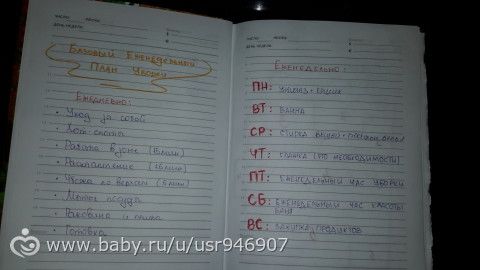 ЧИСЛО МЕСЯЦ
ДЕНЬ НЕДЕЛИ
Базовый Еженедельный
План Уборки
Ежедневно:
• Уход за собой
• Хот-споты
• Работа в зоне (15 мин)
• Расхламление (15 мин)
• (5 мин)
• Мытьё посуды
• Раковина и плита
• Готовка
ЧИСЛО МЕСЯЦ
ДЕНЬ НЕДЕЛИ
Еженедельно:
ПН:
ВТ: ВАННА
СР: СТИРКА ВЕЩЕЙ +
ЧТ: ГЛАЖКА (ПО НЕОБХОДИМОСТИ)
ПТ: ЕЖЕНЕДЕЛЬНЫЙ ЧАС УБОРКИ
СБ: ЕЖЕНЕДЕЛЬНЫЙ ЧАС КРАСОТЫ
БАНЯ
ВС: ЗАКУПКА ПРОДУКТОВ
www.baby.ru/u/usr946907